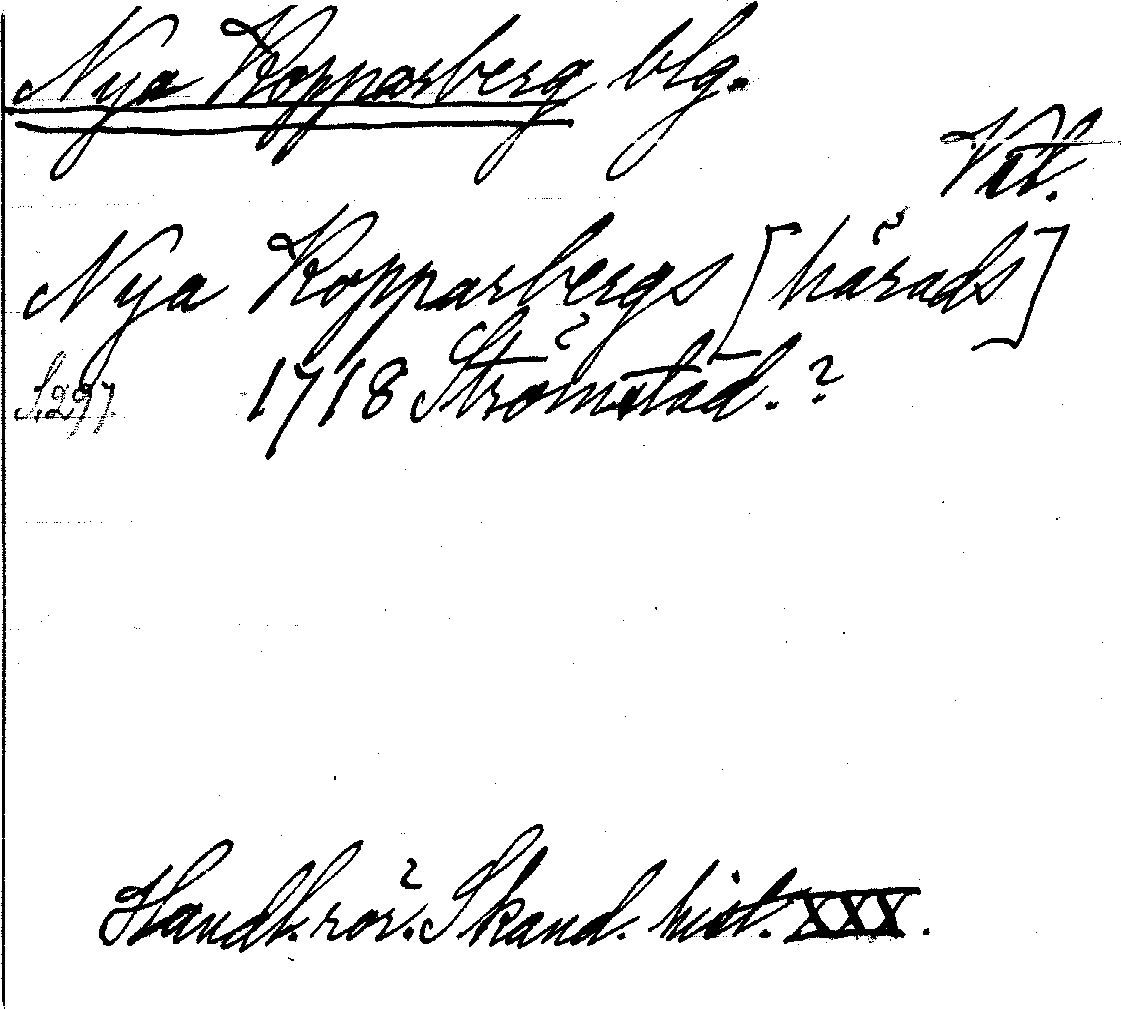 Nya Kopparberg blg.
Vstl.
Nya Kopparbergs [härads]
S. 297. 1718 Strömstad. ?
Handl. rör. Skand. hist. XXX.